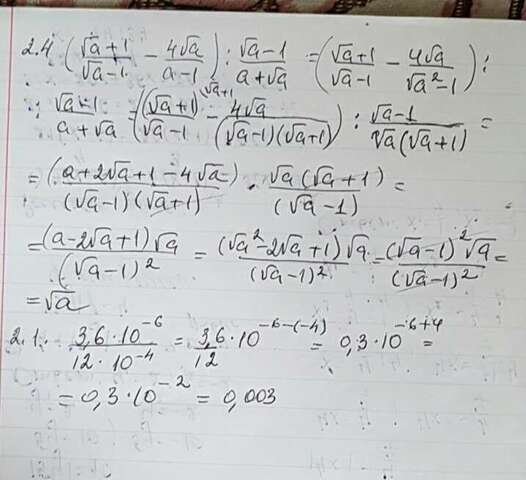 2.4 ((√a+1)/(√a-1) - 4√a/(a-1)) : (√a-1)/(a+√a) = ((√a+1)/(√a-1) - 4√a/(√a²-1)) :
: (√a-1)/(a+√a) = ((√a+1)^(√a+1)/(√a-1) - 4√a/((√a-1)(√a+1))) : (√a-1)/(√a(√a+1)) =
= (a+2√a+1-4√a)/((√a-1)(√a+1)) · √a(√a+1)/(√a-1) =
= (a-2√a+1)√a/(√a-1)² = (√a²-2√a+1)√a/(√a-1)² = (√a-1)²√a/(√a-1)² =
= √a
2.1. 3,6·10⁻⁶/12·10⁻⁴ = 3,6/12·10^(-6-(-4)) = 0,3·10^(-6+4) =
= 0,3·10⁻² = 0,003